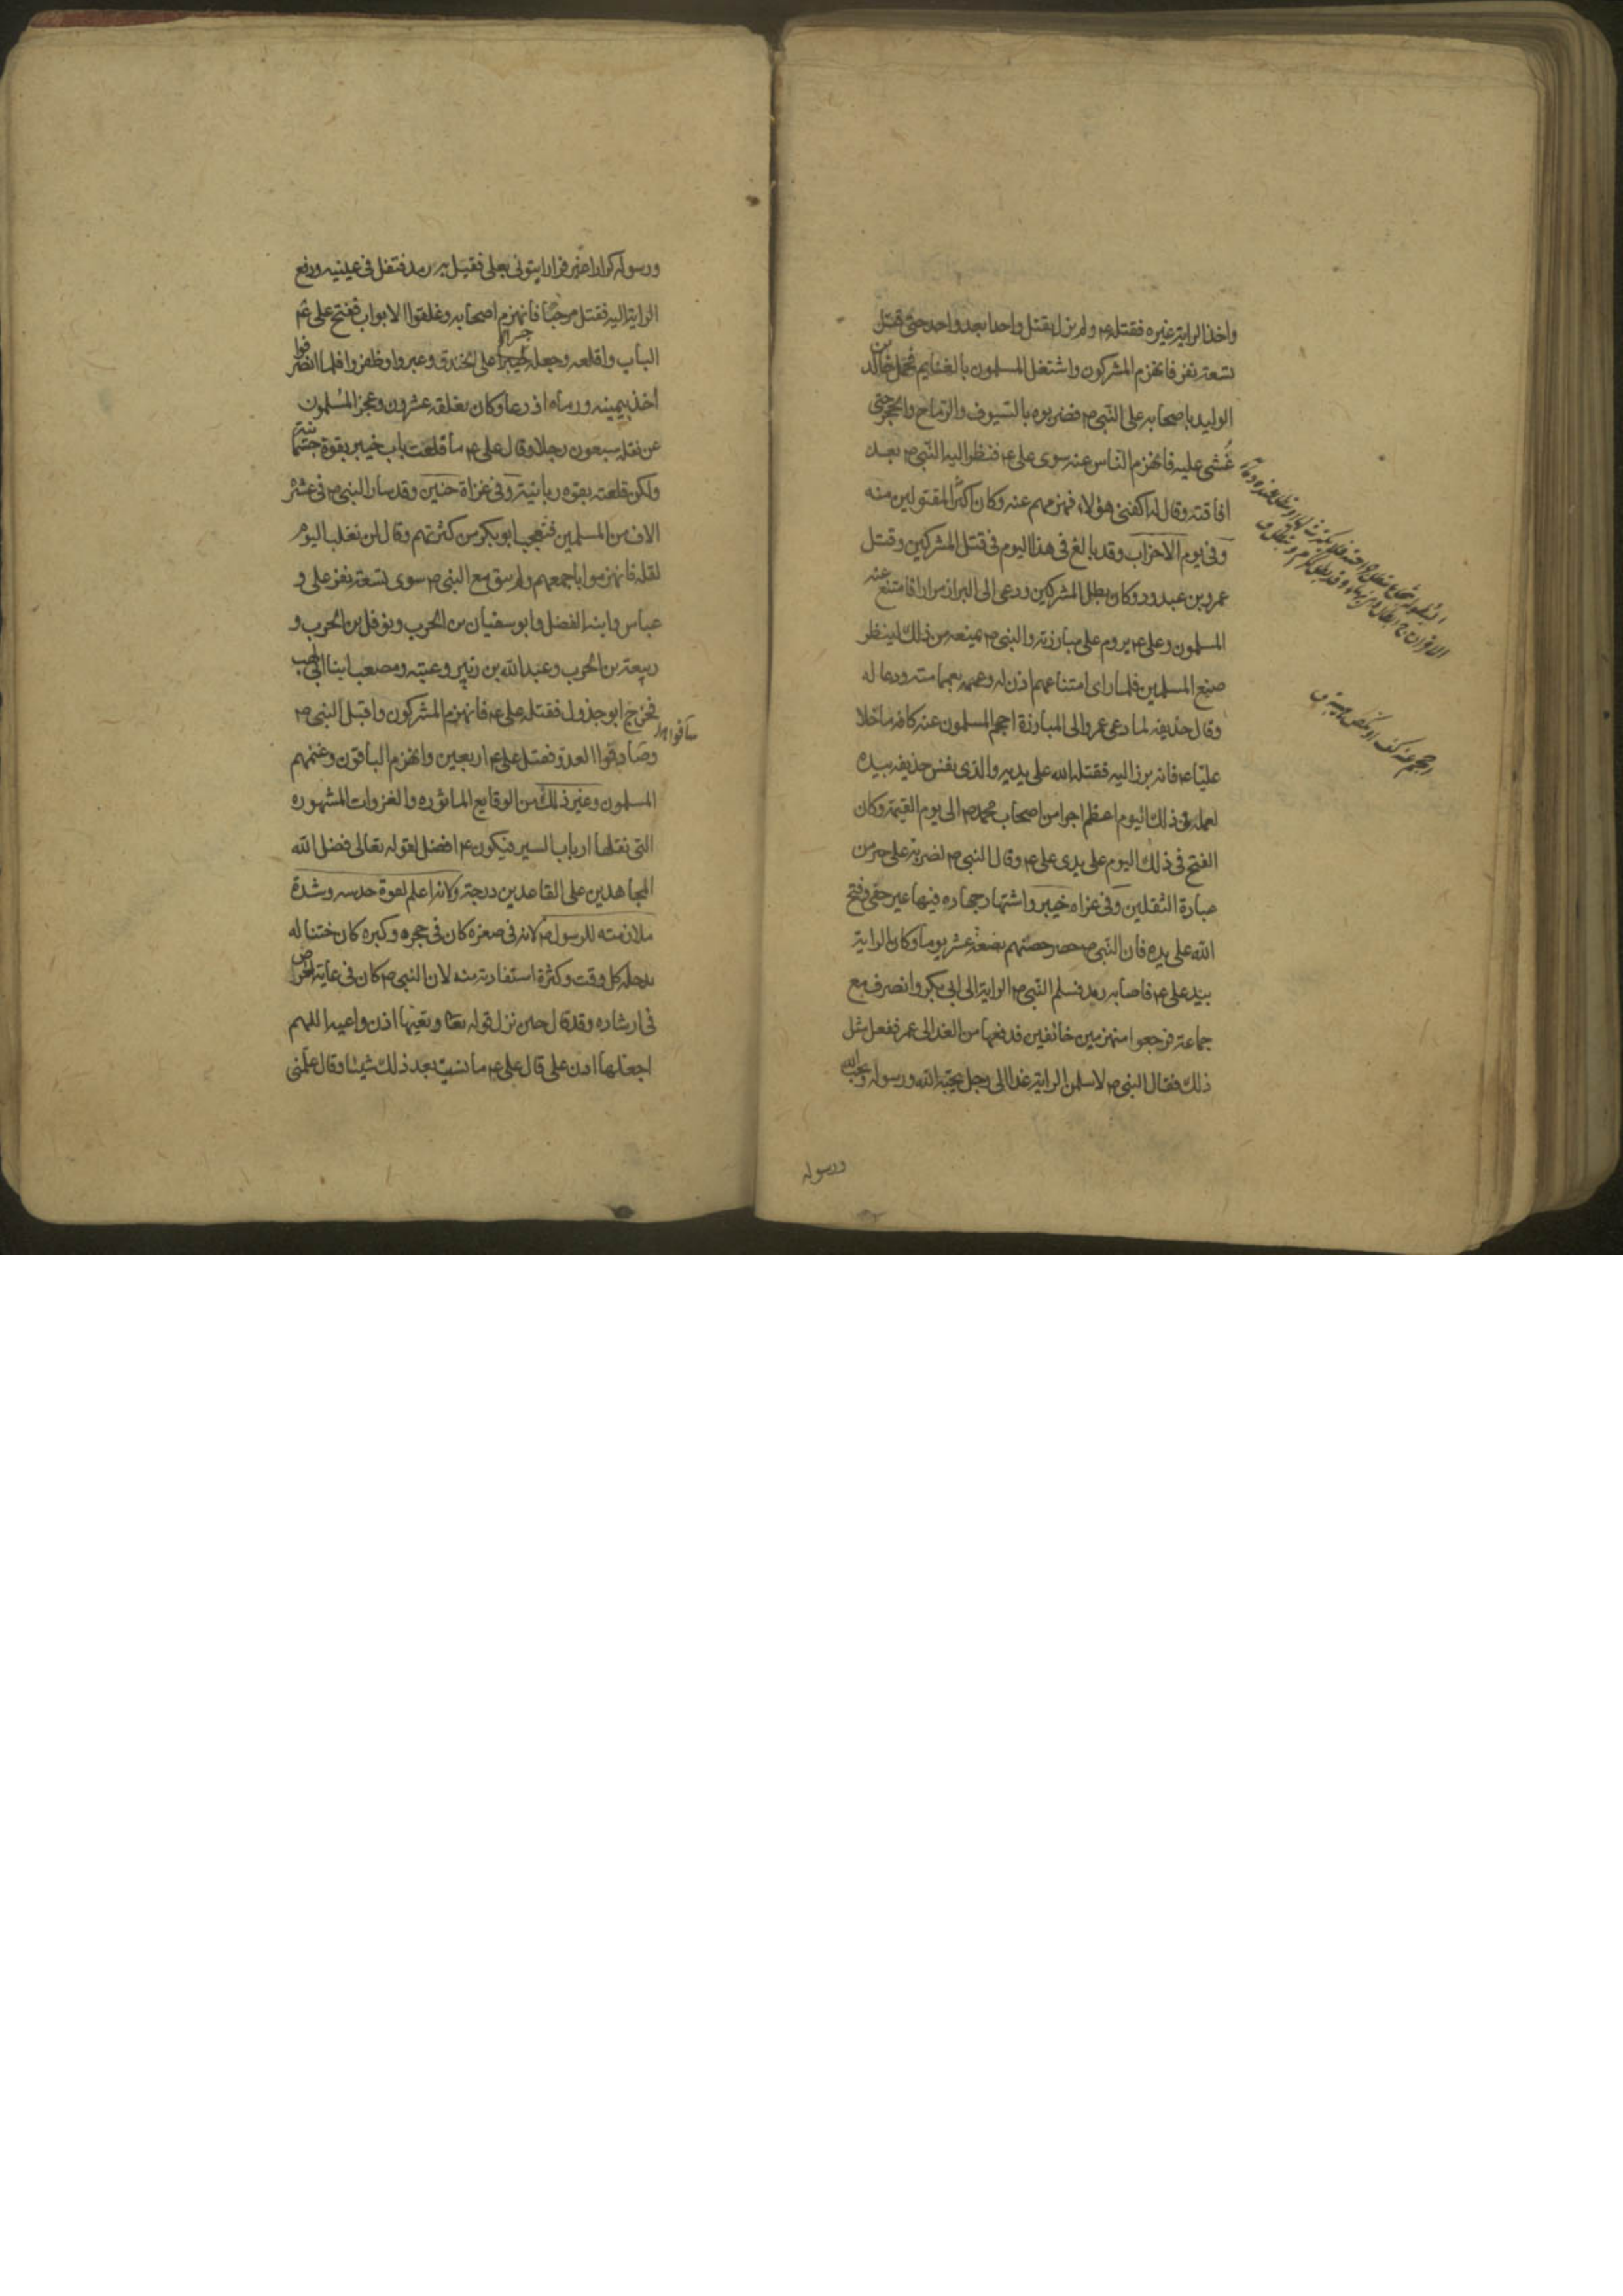 واخذ الراية غيره فقتله ع ولم يزل يقتل واحدا بعد واحد حتى قتل
تسعة نفر فانهزم المشركون واشتغل المسلمون بالغنايم فحمل خالد بن
الوليد باصحابه على النبي ص فضربوه بالسيوف والرماح والحجر حتى
غشي عليه فانهزم الناس عنه سوى علي ع فنظر اليه النبي ص بعد
افاقته وقال له اكفني هؤلاء فهزمهم عنه وكان اكثر المقتولين منه
وفي يوم الاحزاب وقد بالغ في هذا اليوم في قتل المشركين وقتل
عمرو بن عبدود وكان بطل المشركين ودعى الى البراز مرارا فامتنع عنه
المسلمون وعلي ع يروم على مبارزته والنبي ص يمنعه من ذلك لينظر
صنع المسلمين فلما راى امتناعهم اذن له وعممه بعمامته ودعا له
وقال حذيفه لما دعى عمرو الى المبارزة احجم المسلمون عنه كافه ما خلا
عليا ع فانه برز اليه فقتله الله على يديه والذي نفس حذيفه بيده
لعمله في ذلك اليوم اعظم اجرا من اصحاب محمد ص الى يوم القيمة وكان
الفتح في ذلك اليوم على يدى علي ع وقال النبي ص لضربة علي خير من
عبادة الثقلين وفي غزاه خيبر واشتهار جهاده فيها غير خفي وفتح
الله على يده فان النبي ص حصر حصنهم بضعة عشر يوما وكان الراية
بيد علي ع فاصابه رمد فسلم النبي ص الراية الى ابي بكر وانصرف مع
جماعة فرجعوا منهزمين خائفين فدفعها من الغد الى عمر ففعل مثل
ذلك فقال النبي ص لاسلمن الراية غدا الى رجل يحبه الله ورسوله ويحب الله
ورسوله
ورسوله كرارا غير فرار ايتوني بعلي فقيل به رمد فتفل في عينيه ودفع
الراية اليه فقتل مرحبا فانهزم اصحابه وغلقوا الابواب ففتح علي ع
الباب واقلعه وجعله جسرا على الخندق وعبروا وظفروا فلما انصرفوا
اخذ بيمينه ورماه اذرعا وكان يغلقه عشرون وعجز المسلمون
عن نقله سبعون رجلا وقال علي ع ما قلعت باب خيبر بقوة جسمانية
ولكن قلعته بقوه ربانية وفي غزاة حنين وقد سار النبي ص في عشر
الاف من المسلمين فتعجب ابو بكر من كثرتهم وقال لن نغلب اليوم
لقله فانهزموا باجمعهم ولم يبق مع النبي ص سوى تسعة نفر علي و
عباس وابنه الفضل وابو سفيان بن الحرب ونوفل بن الحرب و
ربيعة بن الحرب وعبد الله بن زبير وعتبه ومصعب ابنا ابي لهب
فخرج ابو جذول فقتله علي ع فانهزم المشركون واقبل النبي ص
وصادقوا العدو فقتل علي ع اربعين وانهزم الباقون وغنمهم
المسلمون وغير ذلك من الوقايع الماثوره والغزوات المشهوره
التي نقلها ارباب السير فيكون ع افضل لقوله تعالى فضل الله
المجاهدين على القاعدين درجة ولانه اعلم لقوة حدسه وشدة
ملازمته للرسول ص لانه في صغره كان في حجره وكبره كان ختنا له
يدخله كل وقت وكثرة استفادته منه لان النبي ص كان في غاية الحرص
في ارشاده وقد قال حين نزل قوله تعا وتعيها اذن واعيه اللهم
اجعلها اذن علي قال علي ع ما نسيت بعد ذلك شيئا وقال علمني